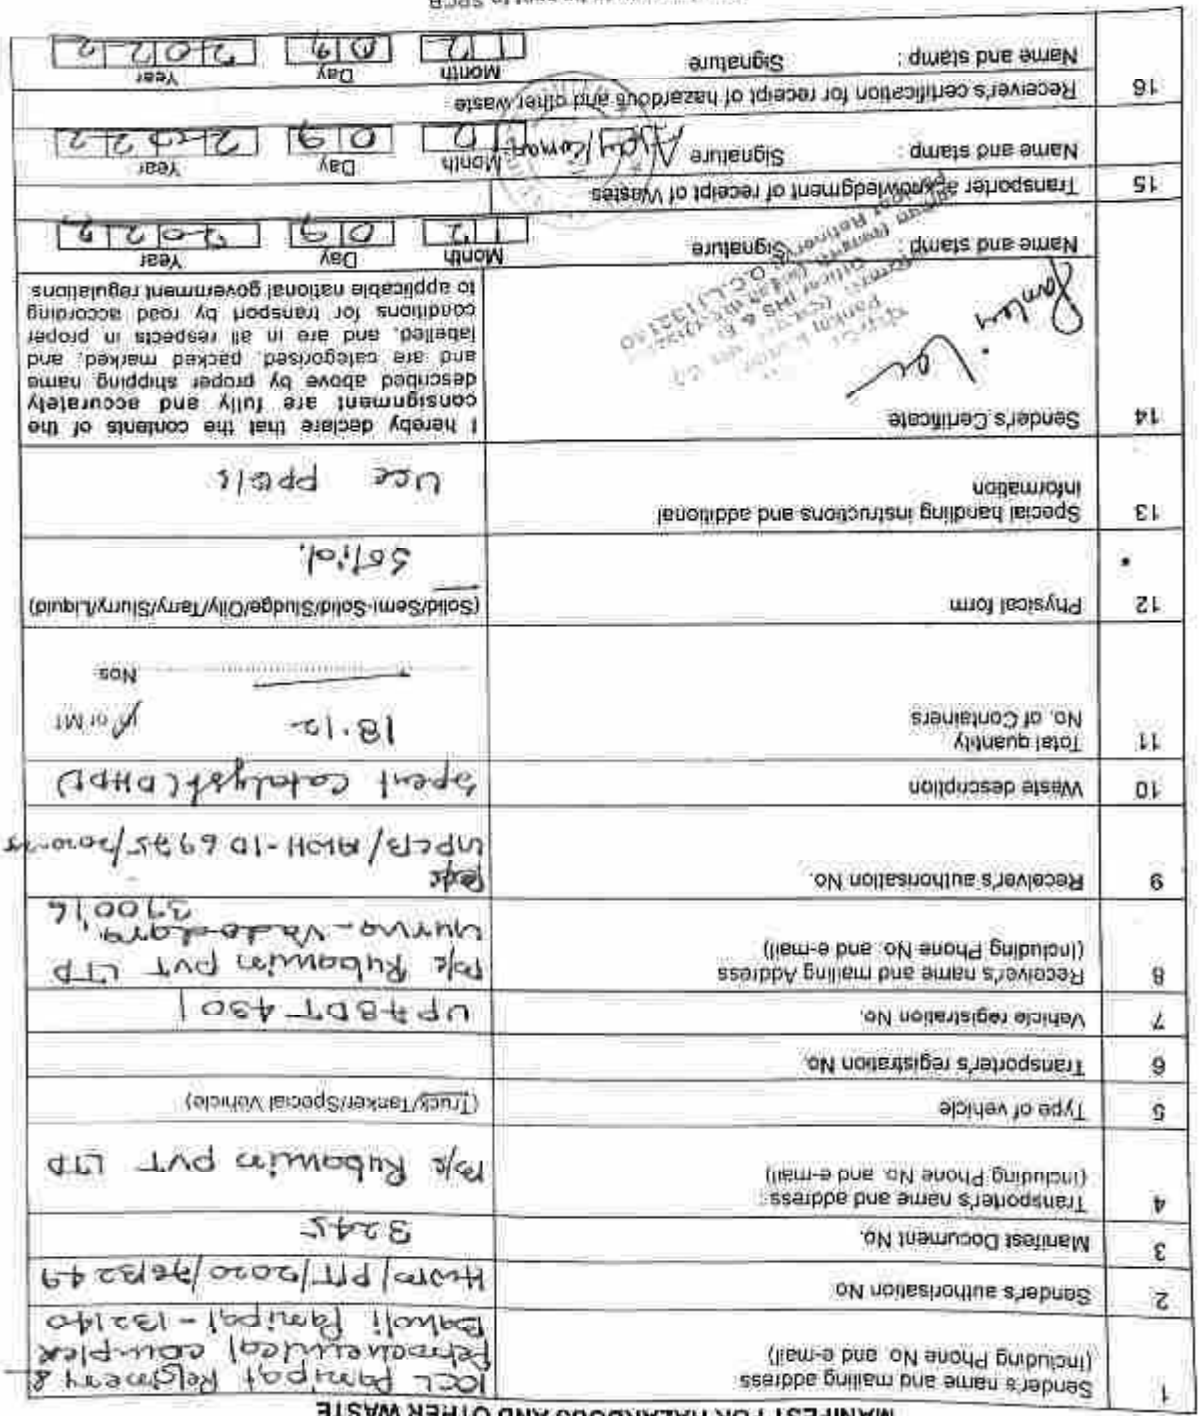 MANIFEST FOR HAZARDOUS AND OTHER WASTE
1 Sender's name and mailing address
(Including Phone No. and e-mail)
IOCL Panipat Refinery &
Petrochemical complex
Baholi Panipat - 132140
2 Sender's authorisation No
3 Manifest Document No.
3245
4 Transporter's name and address :
(Including Phone No. and e-mail)
M/s Rubamin PVT LTD
5 Type of vehicle
(Truck/Tanker/Special Vehicle)
6 Transporter's registration No.
7 Vehicle registration No.
UP78DT 4301
8 Receiver's name and mailing Address
(Including Phone No. and e-mail)
M/s Rubamin PVT LTD
Vadodara,
390016
9 Receiver's authorisation No.
10 Waste description
Spent Catalyst (DHDT)
11 Total quantity
No. of Containers
18.12 or MT
Nos
12 Physical form
(Solid/Semi-Solid/Sludge/Oily/Tarry/Slurry/Liquid)
Solid.
13 Special handling instructions and additional
information
Use PPE's
14 Sender's Certificate
I hereby declare that the contents of the
consignment are fully and accurately
described above by proper shipping name
and are categorised, packed marked, and
labelled, and are in all respects in proper
conditions for transport by road according
to applicable national government regulations
Name and stamp : Signature
Month Day Year
12 09 2022
15 Transporter acknowledgment of receipt of Wastes
Name and stamp : Signature Ajay Kumar
Month Day Year
12 09 2022
16 Receiver's certification for receipt of hazardous and other waste
Name and stamp : Signature
Month Day Year
12 09 2022